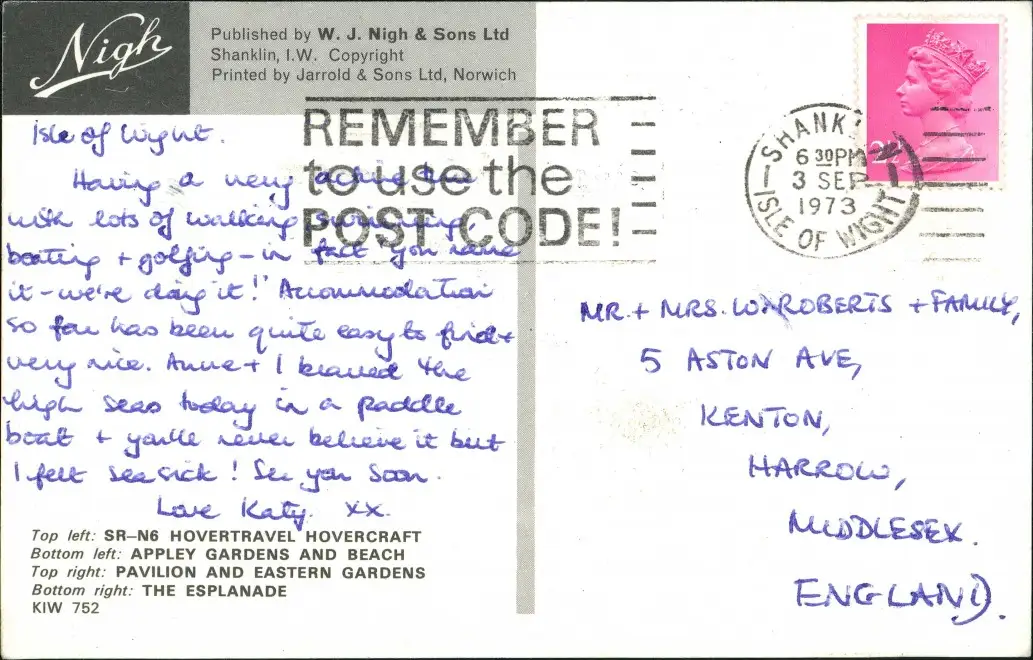 Nigh
Published by W. J. Nigh & Sons Ltd
Shanklin, I.W. Copyright
Printed by Jarrold & Sons Ltd, Norwich
REMEMBER
to use the
POST CODE!
SHANKLIN
6 30PM
3 SEP
1973
ISLE OF WIGHT
Isle of Wight.
Having a very active time
with lots of walking, swimming,
boating + golfing – in fact "you name
it – we're doing it!" Accommodation
so far has been quite easy to find +
very nice. Anne + I braved the
high seas today in a paddle
boat + you'll never believe it but
I felt sea sick! See you soon.
Love Katy. xx.
Top left: SR–N6 HOVERTRAVEL HOVERCRAFT
Bottom left: APPLEY GARDENS AND BEACH
Top right: PAVILION AND EASTERN GARDENS
Bottom right: THE ESPLANADE
KIW 752
MR. + MRS. ROBERTS + FAMILY,
5 ASTON AVE,
KENTON,
HARROW,
MIDDLESEX.
ENGLAND.